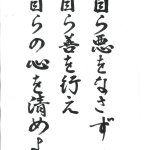 自ら悪をなさず
自ら善を行え
自らの心を清めよ